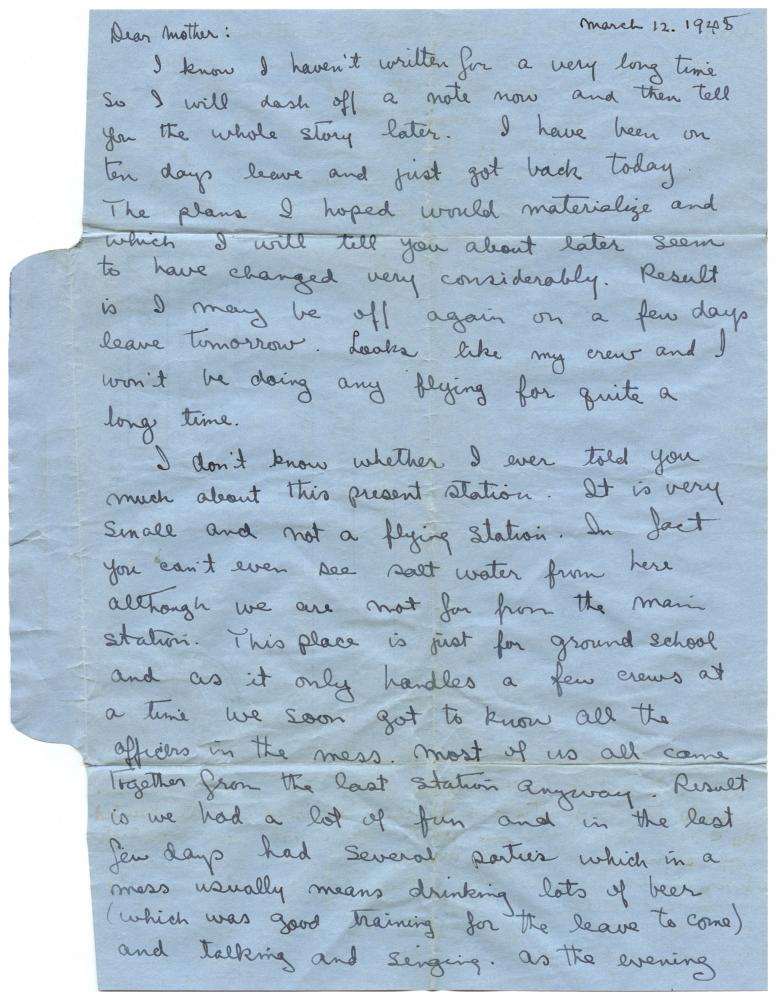 March 12. 1945
Dear Mother:
I know I haven't written for a very long time
so I will dash off a note now and then tell
you the whole story later. I have been on
ten days leave and just got back today.
The plans I hoped would materialize and
which I will tell you about later seem
to have changed very considerably. Result
is I may be off again on a few days
leave tomorrow. Looks like my crew and I
won't be doing any flying for quite a
long time.
I don't know whether I ever told you
much about this present station. It is very
small and not a flying station. In fact
you can't even see salt water from here
although we are not far from the main
station. This place is just for ground school
and as it only handles a few crews at
a time we soon got to know all the
officers in the mess. Most of us all came
together from the last station anyway. Result
is we had a lot of fun and in the last
few days had several parties which in a
mess usually means drinking lots of beer
(which was good training for the leave to come)
and talking and singing. As the evening